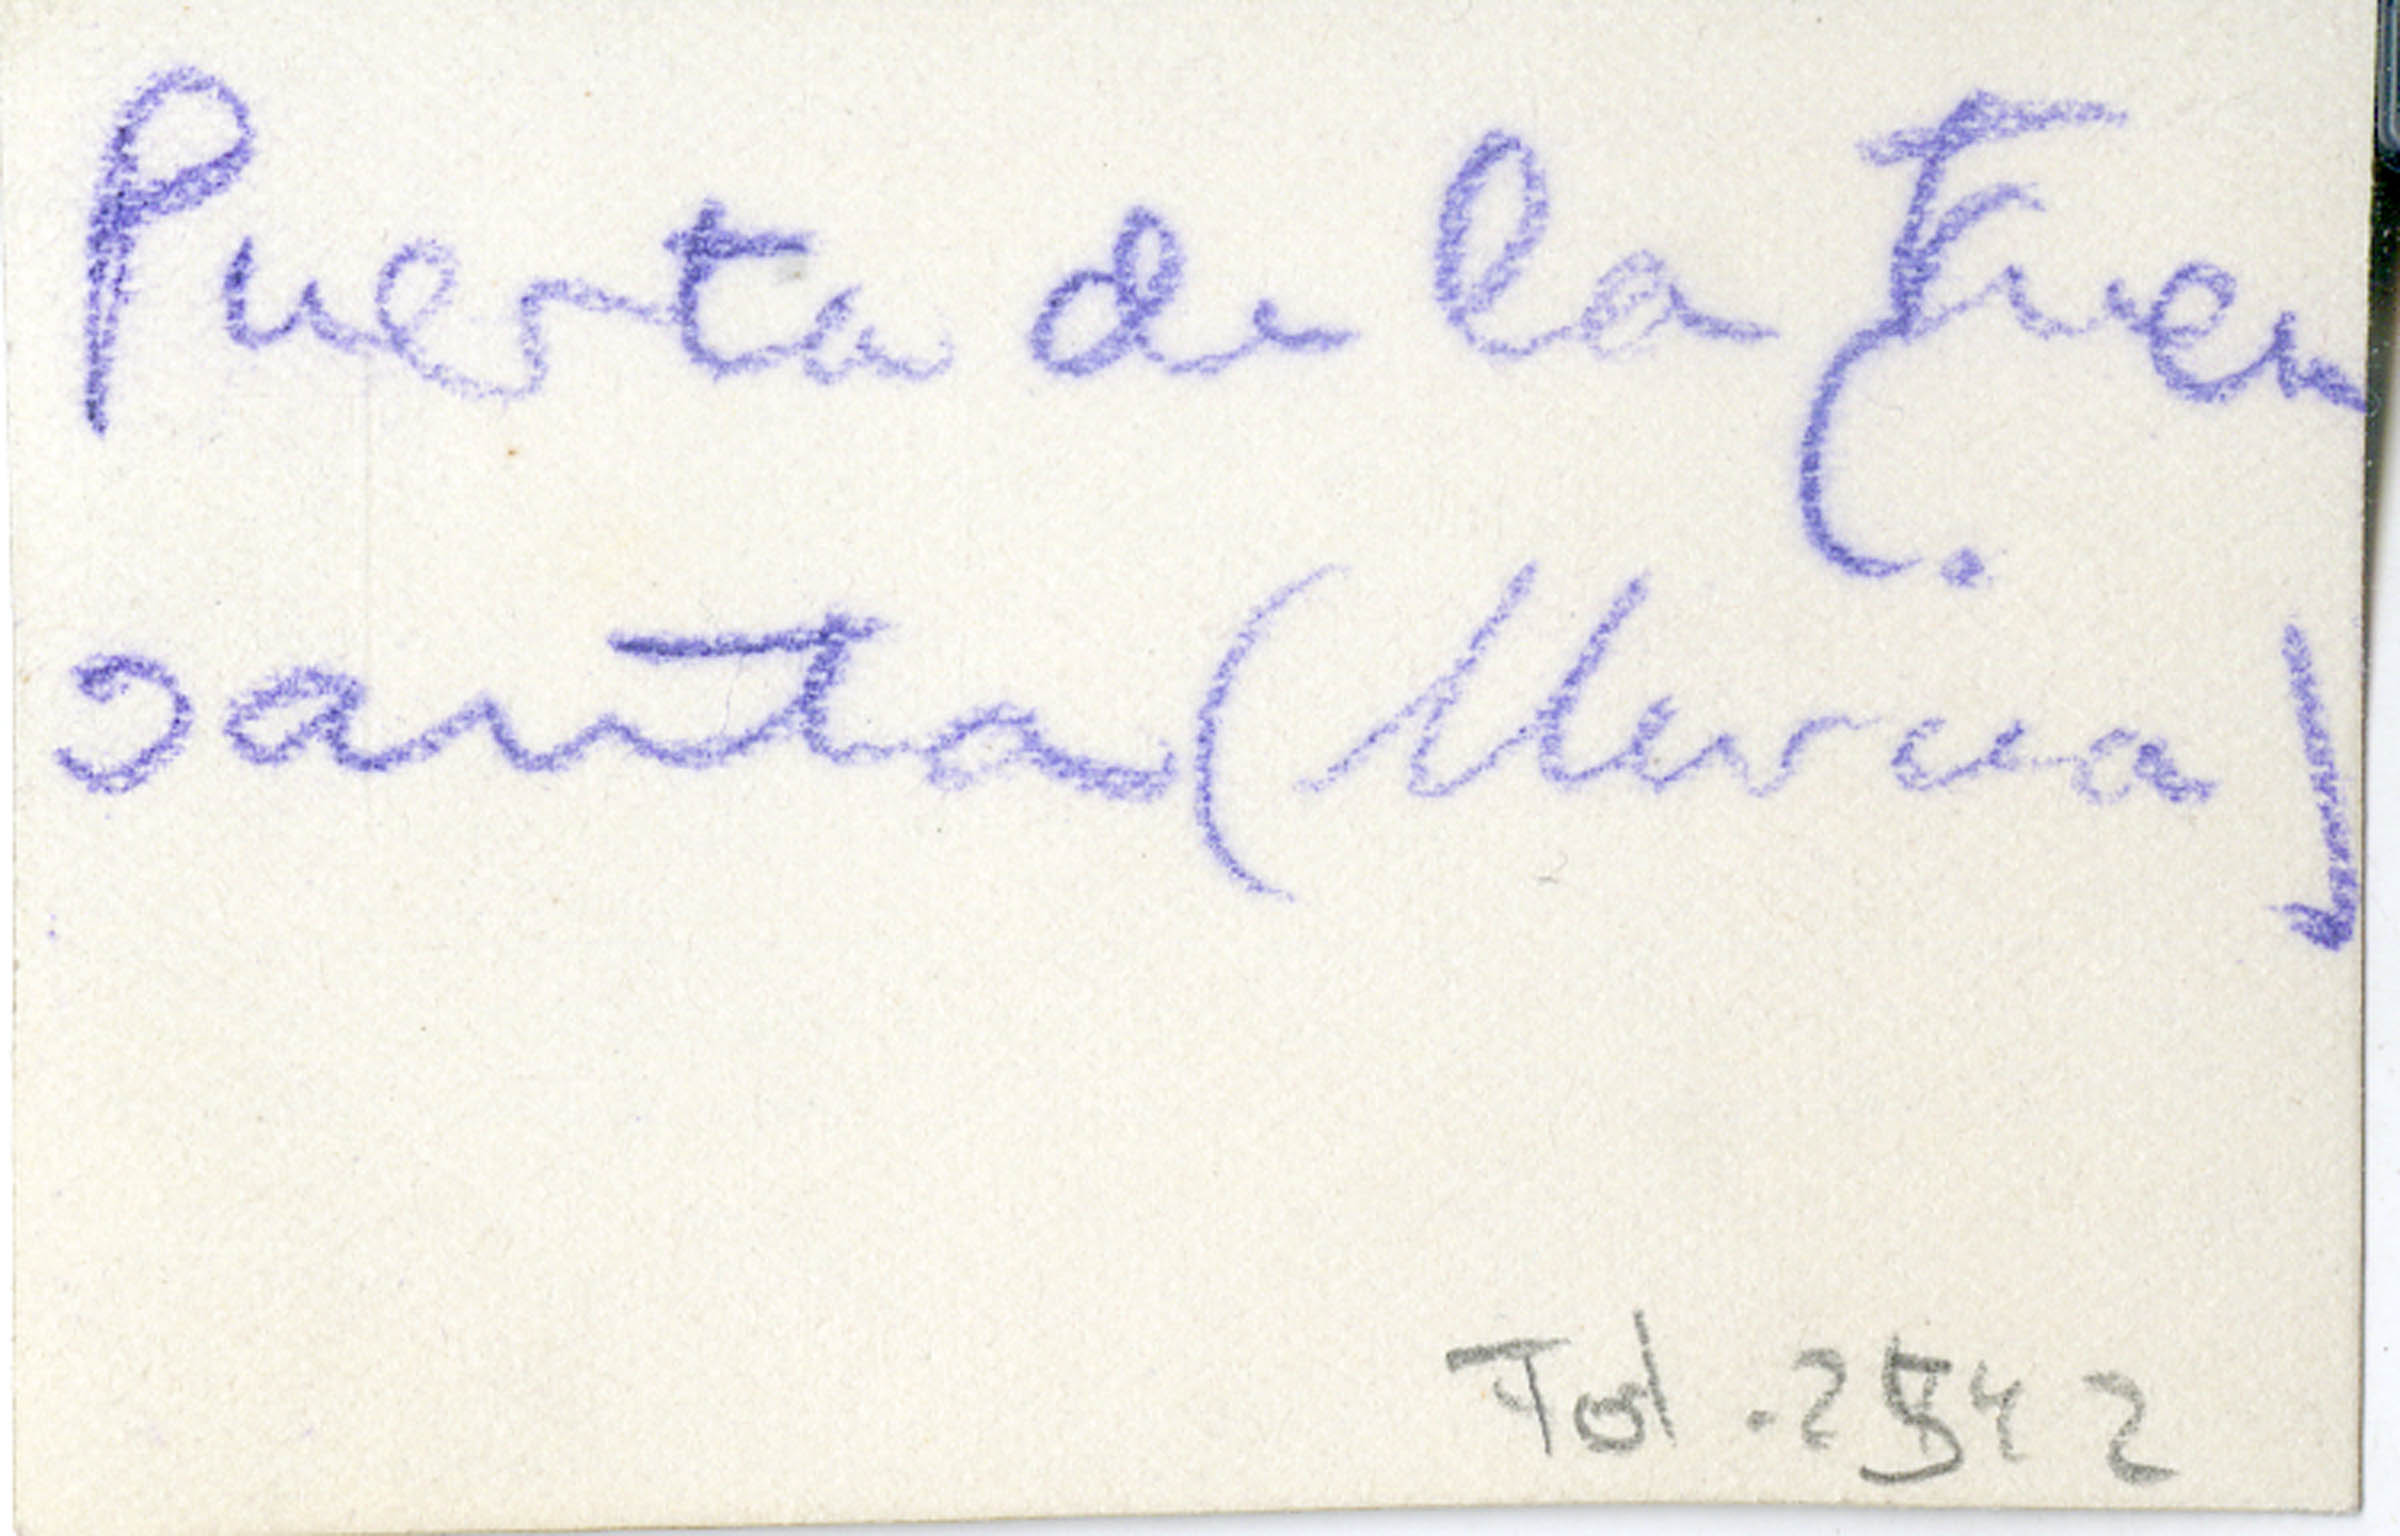 Puerta de la Fuen
santa (Murcia)
Tol. 2542